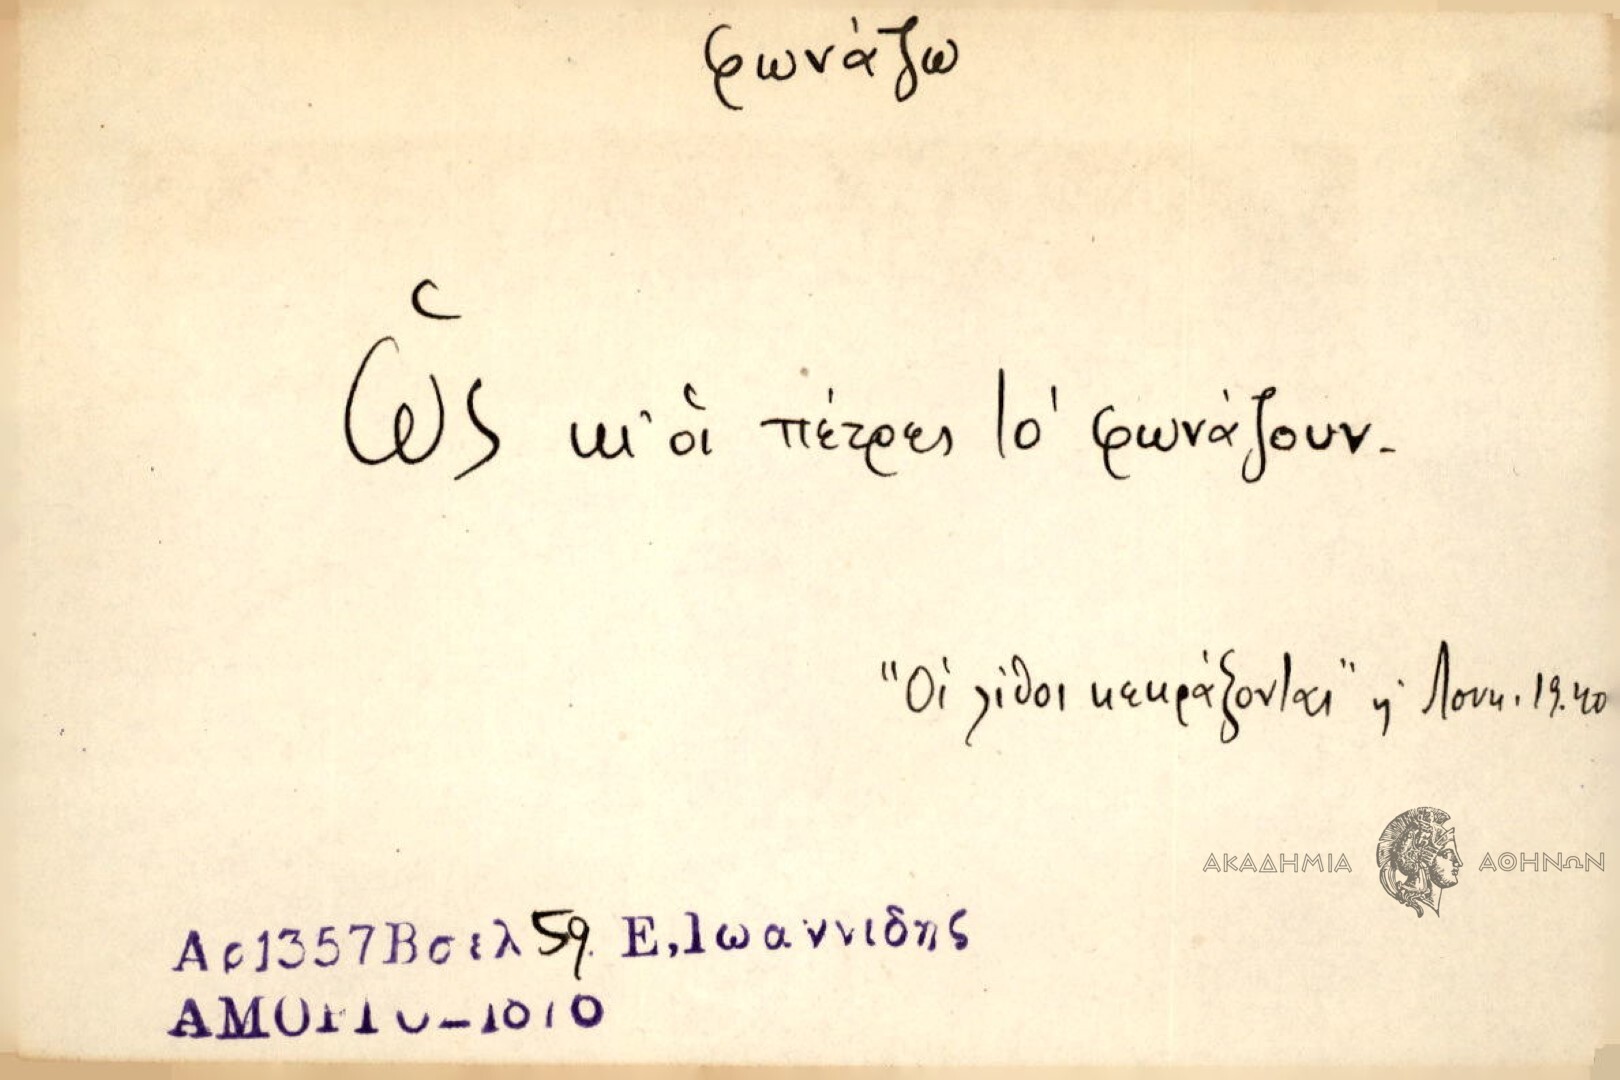 φωνάζω
Ὡς κι' οἱ πέτρες τὸ φωνάζουν.
"Οἱ λίθοι κεκράξονται" Λουκ. 19.40
ΑΚΑΔΗΜΙΑ ΑΘΗΝΩΝ
Αρ1357Βσελ 59. Ε,Ιωαννιδης